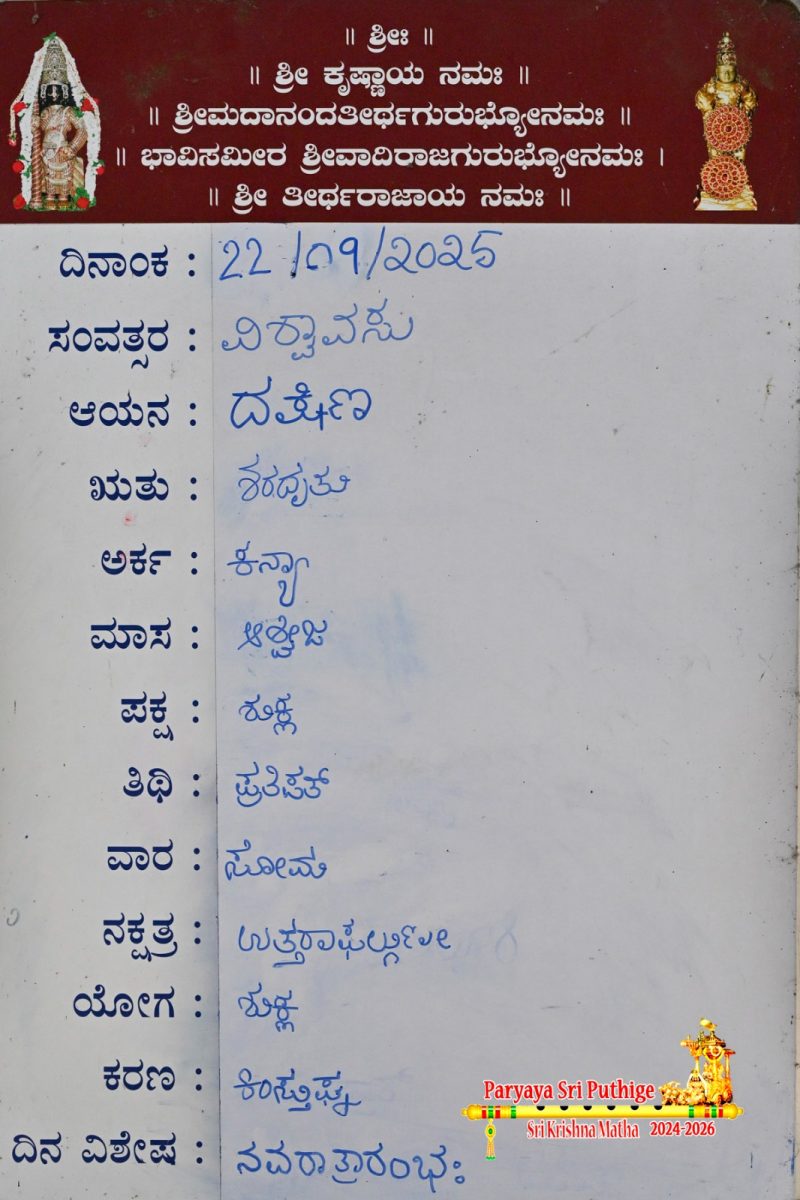 ॥ ಶ್ರೀಃ ॥
॥ ಶ್ರೀ ಕೃಷ್ಣಾಯ ನಮಃ ॥
॥ ಶ್ರೀಮದಾನಂದತೀರ್ಥಗುರುಭ್ಯೋನಮಃ ॥
॥ ಭಾವಿಸಮೀರ ಶ್ರೀವಾದಿರಾಜಗುರುಭ್ಯೋನಮಃ ।
॥ ಶ್ರೀ ತೀರ್ಥರಾಜಾಯ ನಮಃ ॥
ದಿನಾಂಕ : 22/09/2025
ಸಂವತ್ಸರ : ವಿಶ್ವಾವಸು
ಆಯನ : ದಕ್ಷಿಣ
ಋತು : ಶರದೃತು
ಅರ್ಕ : ಕನ್ಯಾ
ಮಾಸ : ಆಶ್ವೇಜ
ಪಕ್ಷ : ಶುಕ್ಲ
ತಿಥಿ : ಪ್ರತಿಪತ್
ವಾರ : ಸೋಮ
ನಕ್ಷತ್ರ : ಉತ್ತರಾಫಲ್ಗುಣೀ
ಯೋಗ : ಶುಕ್ಲ
ಕರಣ : ಕಿಂಸ್ತುಘ್ನ
ದಿನ ವಿಶೇಷ : ನವರಾತ್ರಾರಂಭಃ
Paryaya Sri Puthige
Sri Krishna Matha 2024-2026